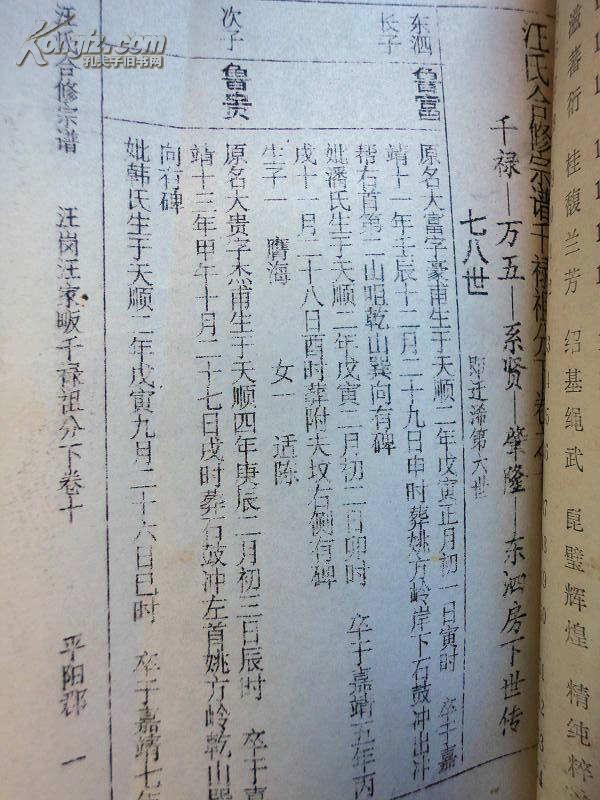 汪氏合修宗谱千禄祖分下卷之
千禄—万五—系贤 肇隆—东泗房下世传
七八世 即迁浠第六世
东泗长子 鲁富 原名大富字豪甫生于天顺二年戊寅正月初一日寅时 卒于嘉
靖十一年壬辰十二月二十九日申时葬姚方岭岸下石鼓冲出冲
帮右首第二山嘴乾山巽向有碑
妣潘氏生于天顺二年戊寅二月初二日卯时 卒于嘉靖五年丙
戌十一月二十八日酉时葬附夫坟右侧有碑
生子一 膺海 女一 适陈
次子 鲁贵 原名大贵字杰甫生于天顺四年庚辰二月初三日辰时 卒于嘉
靖十三年甲午十月二十七日戌时葬石鼓冲左首姚方岭乾山
向有碑
妣韩氏生于天顺二年戊寅九月二十六日巳时 卒于嘉靖七年
汪氏合修宗谱 汪岗汪家畈千禄祖分下卷十 平阳郡 一
滋蕃衍 桂馥兰芳 绍基绳武 昆璧辉煌 精纯粹
Kongfz.com
孔夫子旧书网